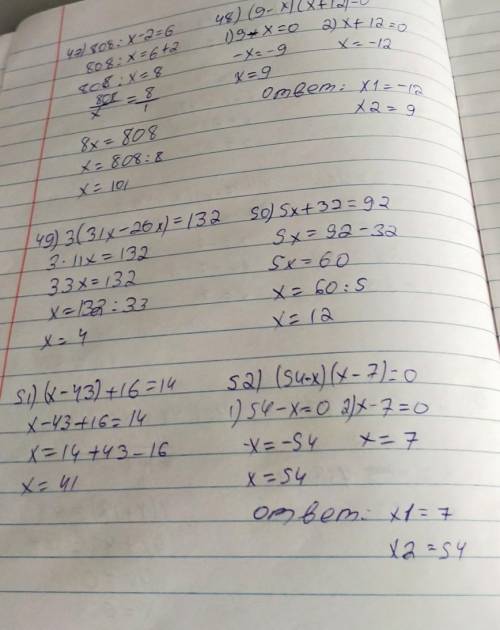 47) 808 : x - 2 = 6
808 : x = 6 + 2
808 : x = 8
808/x = 8/1
8x = 808
x = 808 : 8
x = 101
48) (9 - x)(x + 12) = 0
1) 9 - x = 0 2) x + 12 = 0
-x = -9 x = -12
x = 9
ответ: x1 = -12
x2 = 9
49) 3(31x - 20x) = 132
3 · 11x = 132
33x = 132
x = 132 : 33
x = 4
50) 5x + 32 = 92
5x = 92 - 32
5x = 60
x = 60 : 5
x = 12
51) (x - 43) + 16 = 14
x - 43 + 16 = 14
x = 14 + 43 - 16
x = 41
52) (54 - x)(x - 7) = 0
1) 54 - x = 0 2) x - 7 = 0
-x = -54 x = 7
x = 54
ответ: x1 = 7
x2 = 54